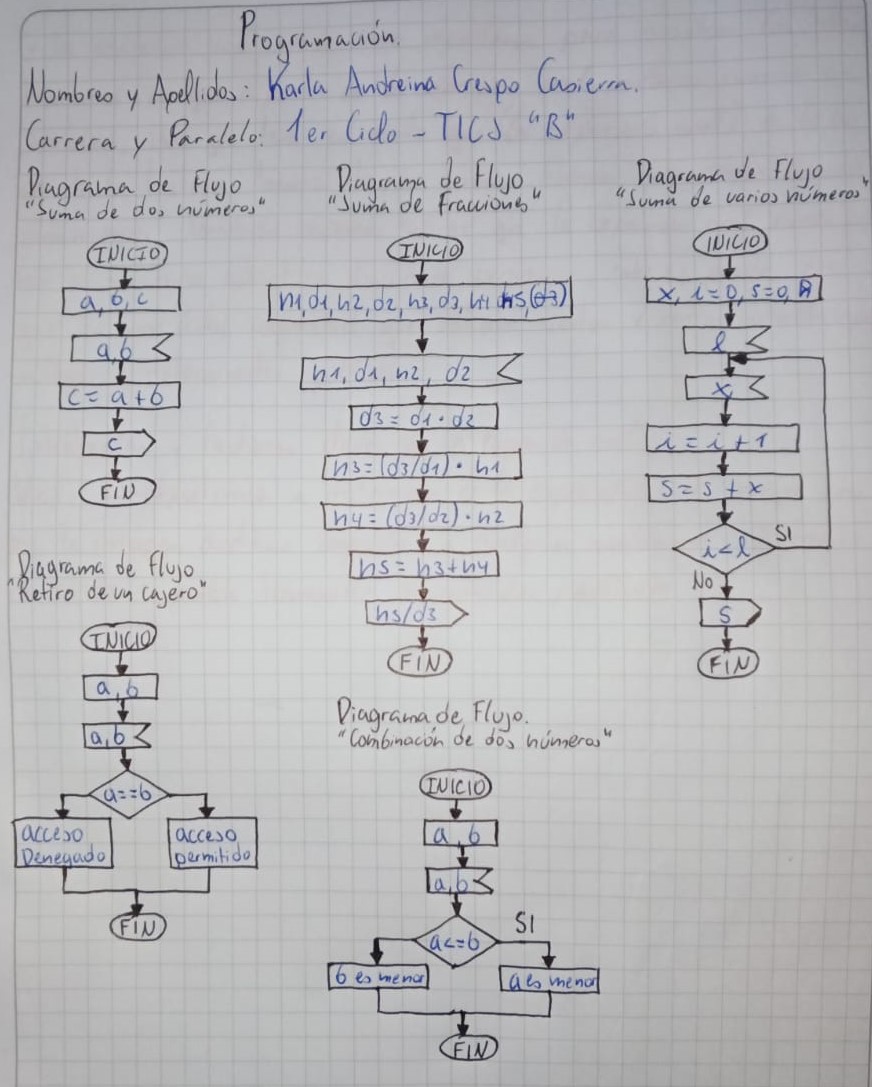 Programación.
Nombres y Apellidos: Karla Andreina Crespo Casierra.
Carrera y Paralelo: 1er Ciclo - TICS "B"
Diagrama de Flujo
"Suma de dos números"
INICIO
a, b, c
a,b
c = a + b
c
FIN
Diagrama de Flujo
"Suma de Fracciones"
INICIO
n1, d1, n2, d2, n3, d3, n4, n5, (d3)
n1, d1, n2, d2
d3 = d1 · d2
n3 = (d3/d1) · n1
n4 = (d3/d2) · n2
n5 = n3 + n4
n5/d3
FIN
Diagrama de Flujo
"Suma de varios números"
INICIO
x, i=0, s=0,
l
x
i = i + 1
s = s + x
i < l
SI
No
S
FIN
Diagrama de flujo
"Retiro de un cajero"
INICIO
a, b
a, b
a==b
acceso
Denegado
acceso
permitido
FIN
Diagrama de Flujo.
"Combinación de dos números"
INICIO
a, b
a,b
a<=b
SI
b es menor
a es menor
FIN